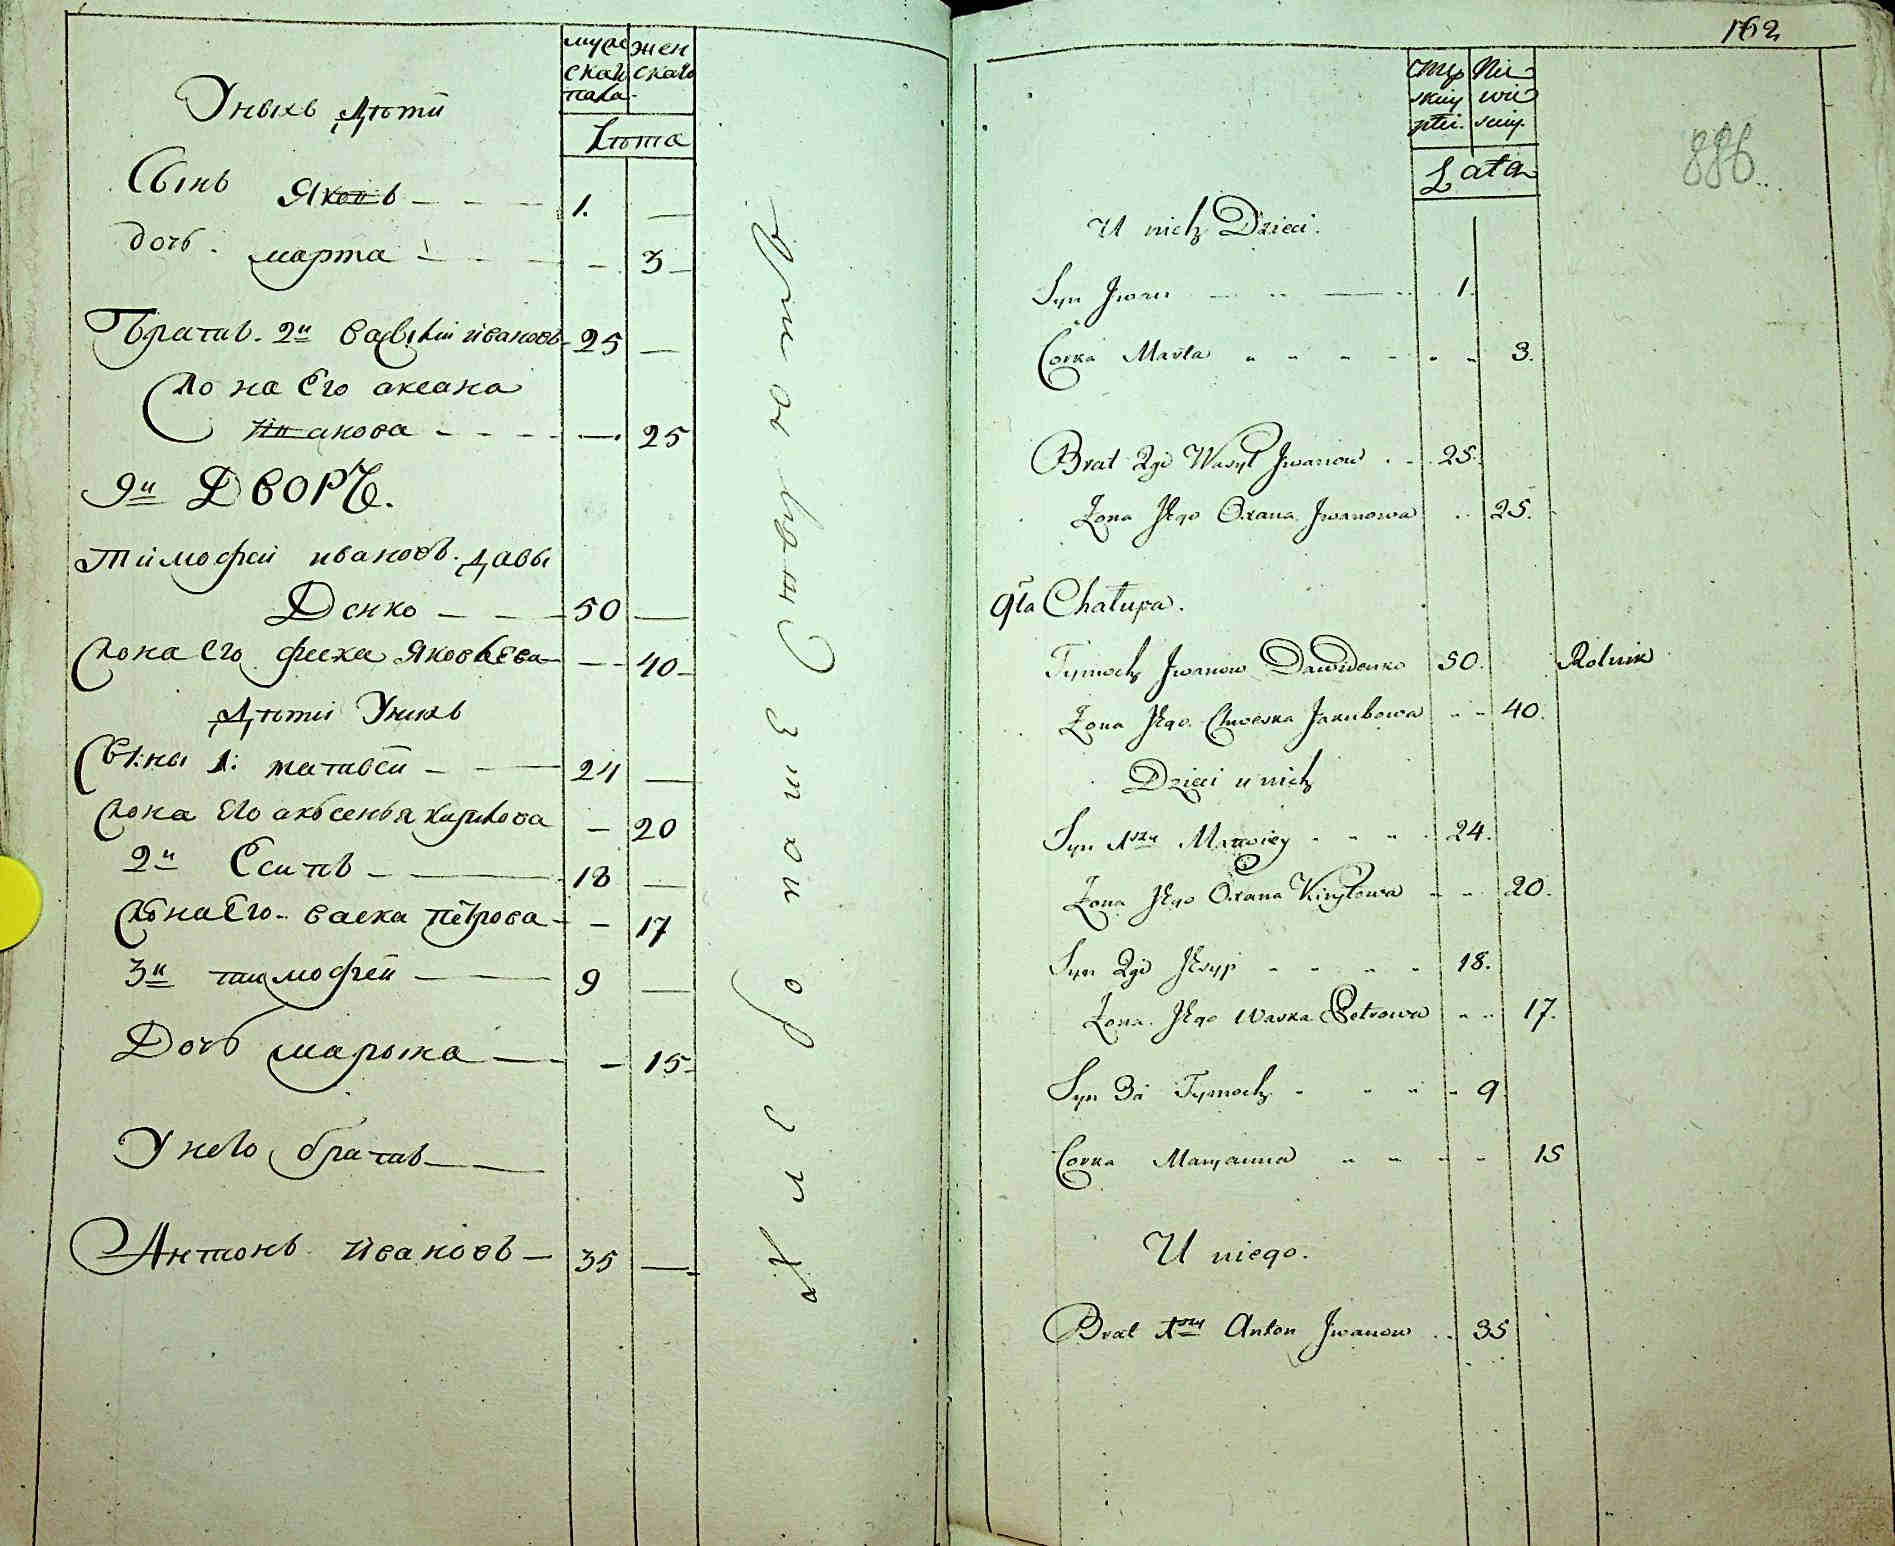 муже
скаго
пола
жен
скаго
Лѣта
Уныхь дѣти
Сынь Яковь 1. —
дочь. марта — 3
Братъ. 2й василий ивановъ 25 —
Жона Его аксана
ивановa — 25
9й ДВОРЪ.
Тимофей ивановъ. давы
Денко 50 —
Жона его феска Яковлева — 40
Дѣти Унихъ
Сыны 1: матвей 24 —
Жона его аксенья кирилова — 20
2й Есипъ 18 —
Жона Его васка петрова — 17
3й тимофей 9 —
Дочь марьяна — 15
У него братъ
Антонъ ивановъ 35 —
162
886
męz
skiey
płci.
Nie
wie
sciey.
Lata
U nich Dzieci.
Syn Jwan 1.
Corka Marta 3.
Brat 2gi Wasyl Jwanow 25.
Żona Jego Oxana Jwanowa 25.
9ta Chałupa.
Tymoch Jwanow Dawidenko 50. Rolnik
Żona Jego Chweska Jakubowa 40.
Dzieci u nich
Syn 1szy Matwiey 24.
Żona Jego Oxana Kiryłowa 20.
Syn 2gi Jesyp 18.
Żona Jego Waska Petrowa 17.
Syn 3ci Tymoch 9
Corka Maryanna 15
U niego.
Brat 1szy Anton Jwanow 35